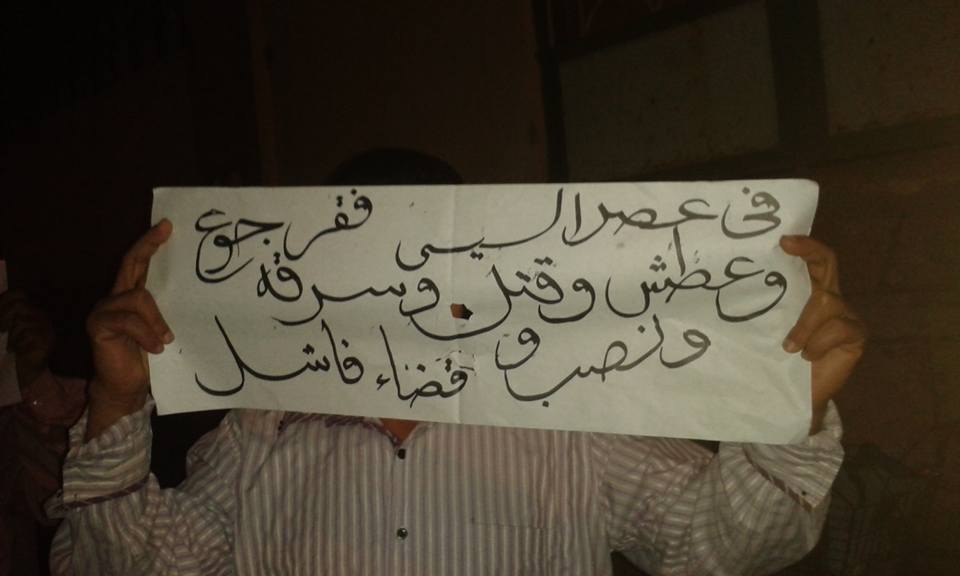 فى عصر السيسى فقر جوع
وعطش وقتل وسرقه
ونصب و قضاء فاشل